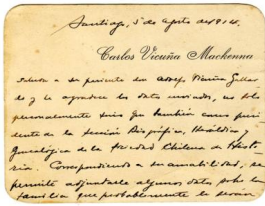 Santiago, 5 de agosto de 1914.
Carlos Vicuña Mackenna
Saluda a su pariente don Adolfo Vicuña Gallar
do y le agradece los datos enviados, no sólo
personalmente sino que también como presi
dente de la Sección Biográfica, Heráldica y
Genealógica de la Sociedad Chilena de Histo
ria. Correspondiendo a su amabilidad, se
permite adjuntarle algunos datos sobre la
familia que probablemente le serán